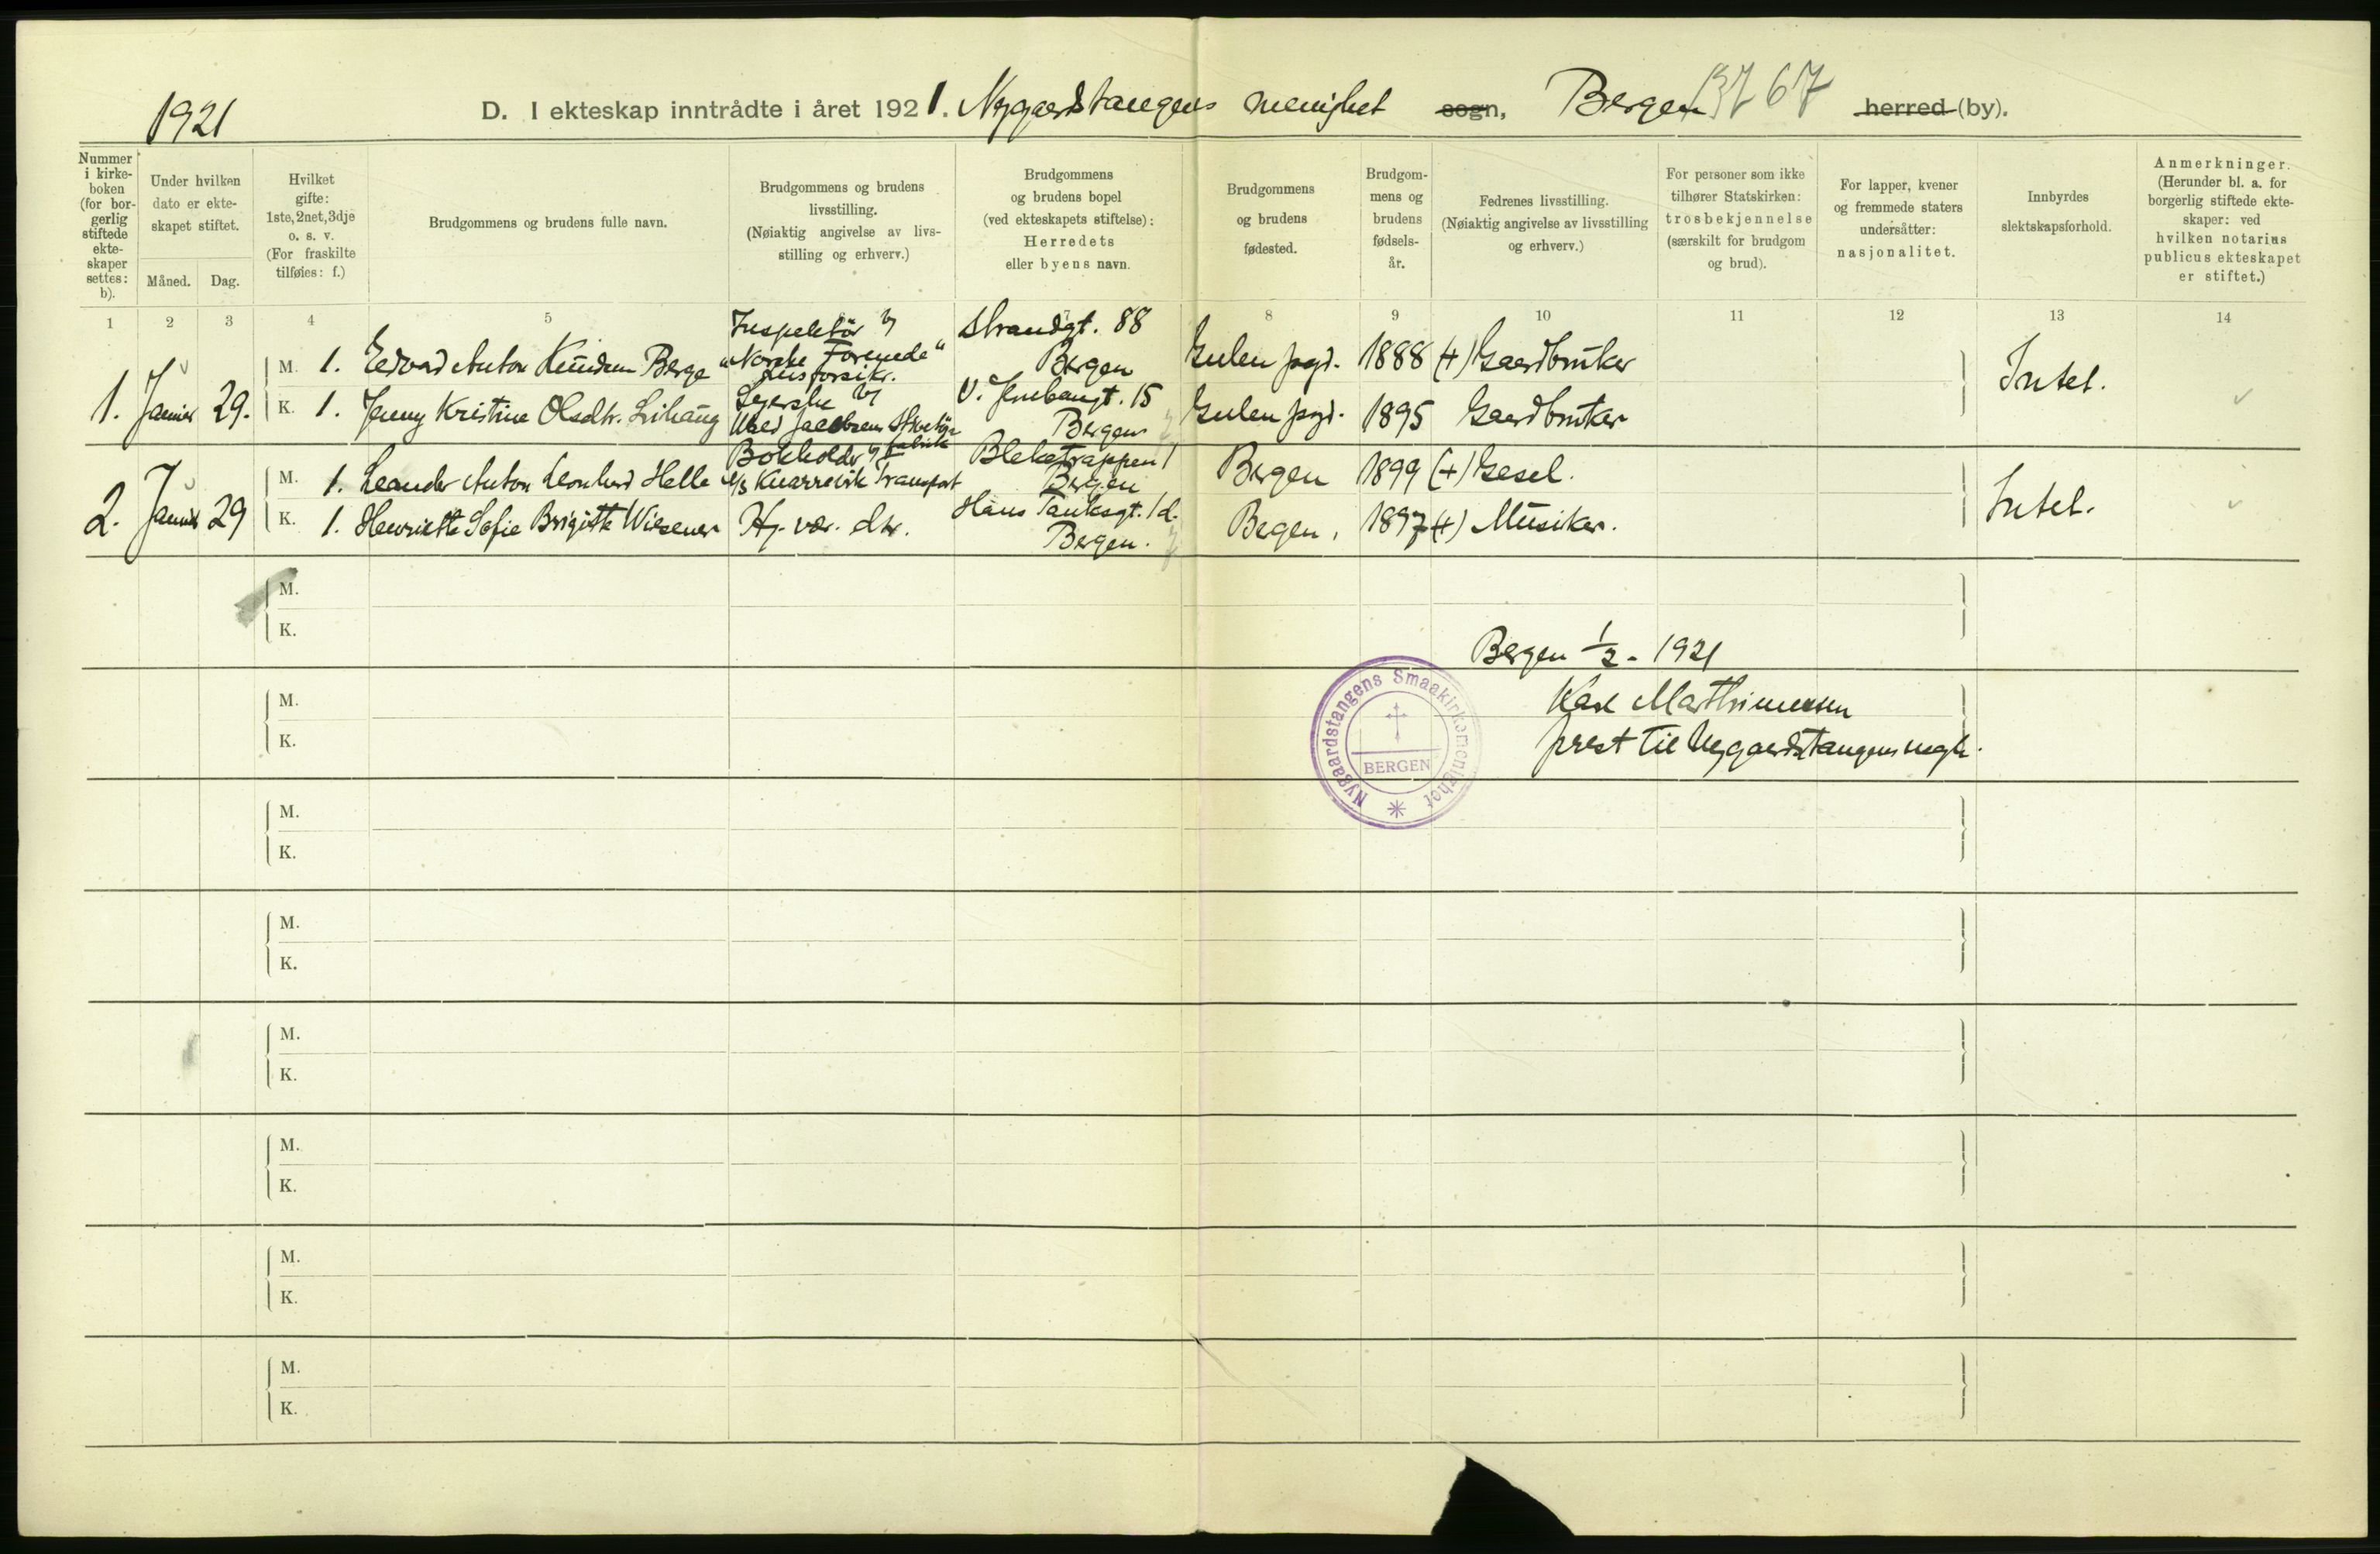 1921
D. I ekteskap inntrådte i året 1921. Nygaardstangens menighet sogn, Bergen 13767 herred (by).
Nummer i kirkeboken (for borgerlig stiftede ekteskaper settes: b).
Under hvilken dato er ekteskapet stiftet.
Måned. Dag.
Hvilket gifte: 1ste, 2net, 3dje o. s. v. (For fraskilte tilføies: f.)
Brudgommens og brudens fulle navn.
Brudgommens og brudens livsstilling. (Nøiaktig angivelse av livsstilling og erhverv.)
Brudgommens og brudens bopel (ved ekteskapets stiftelse): Herredets eller byens navn.
Brudgommens og brudens fødested.
Brudgommens og brudens fødselsår.
Fedrenes livsstilling. (Nøiaktig angivelse av livsstilling og erhverv.)
For personer som ikke tilhører Statskirken: trosbekjennelse (særskilt for brudgom og brud).
For lapper, kvener og fremmede staters undersåtter: nasjonalitet.
Innbyrdes slektskapsforhold.
Anmerkninger. (Herunder bl. a. for borgerlig stiftede ekteskaper: ved hvilken notarius publicus ekteskapet er stiftet.)
1 2 3 4 5 7 8 9 10 11 12 13 14
1. Januar 29.
M. 1. Edvard Anton Knudsen Berge Inspektör v/ "Norske Forenede" Livsforsikr. Strandgt. 88 Bergen Gulen pgd. 1888 (+) Gaardbruker Intet.
K. 1. Jenny Kristine Olsdtr. Lihaug Syerske v/ Jacobsens fabrik V. 15 Bergen Gulen pgd. 1895 Gaardbruker
2. Januar 29
M. 1. Leander Anton Leonhard Helle Bokholder v/ A/S Knarrevik Transport Bleketrappen 1 Bergen Bergen 1899 (+) Gesel. Intet.
K. 1. Henriette Sofie Brigitte Wiesener Hj. vær. dtr. Hans Tanksgt. 1 d. Bergen. Bergen. 1897 (+) Musiker.
M.
K.
Bergen 1/2 - 1921
M.
K.
Karl Marthinussen
prest til Nygaardstangens mgh.
Nygaardstangens Smaakirkemenighet
BERGEN
M.
K.
M.
K.
M.
K.
M.
K.
M.
K.
M.
K.